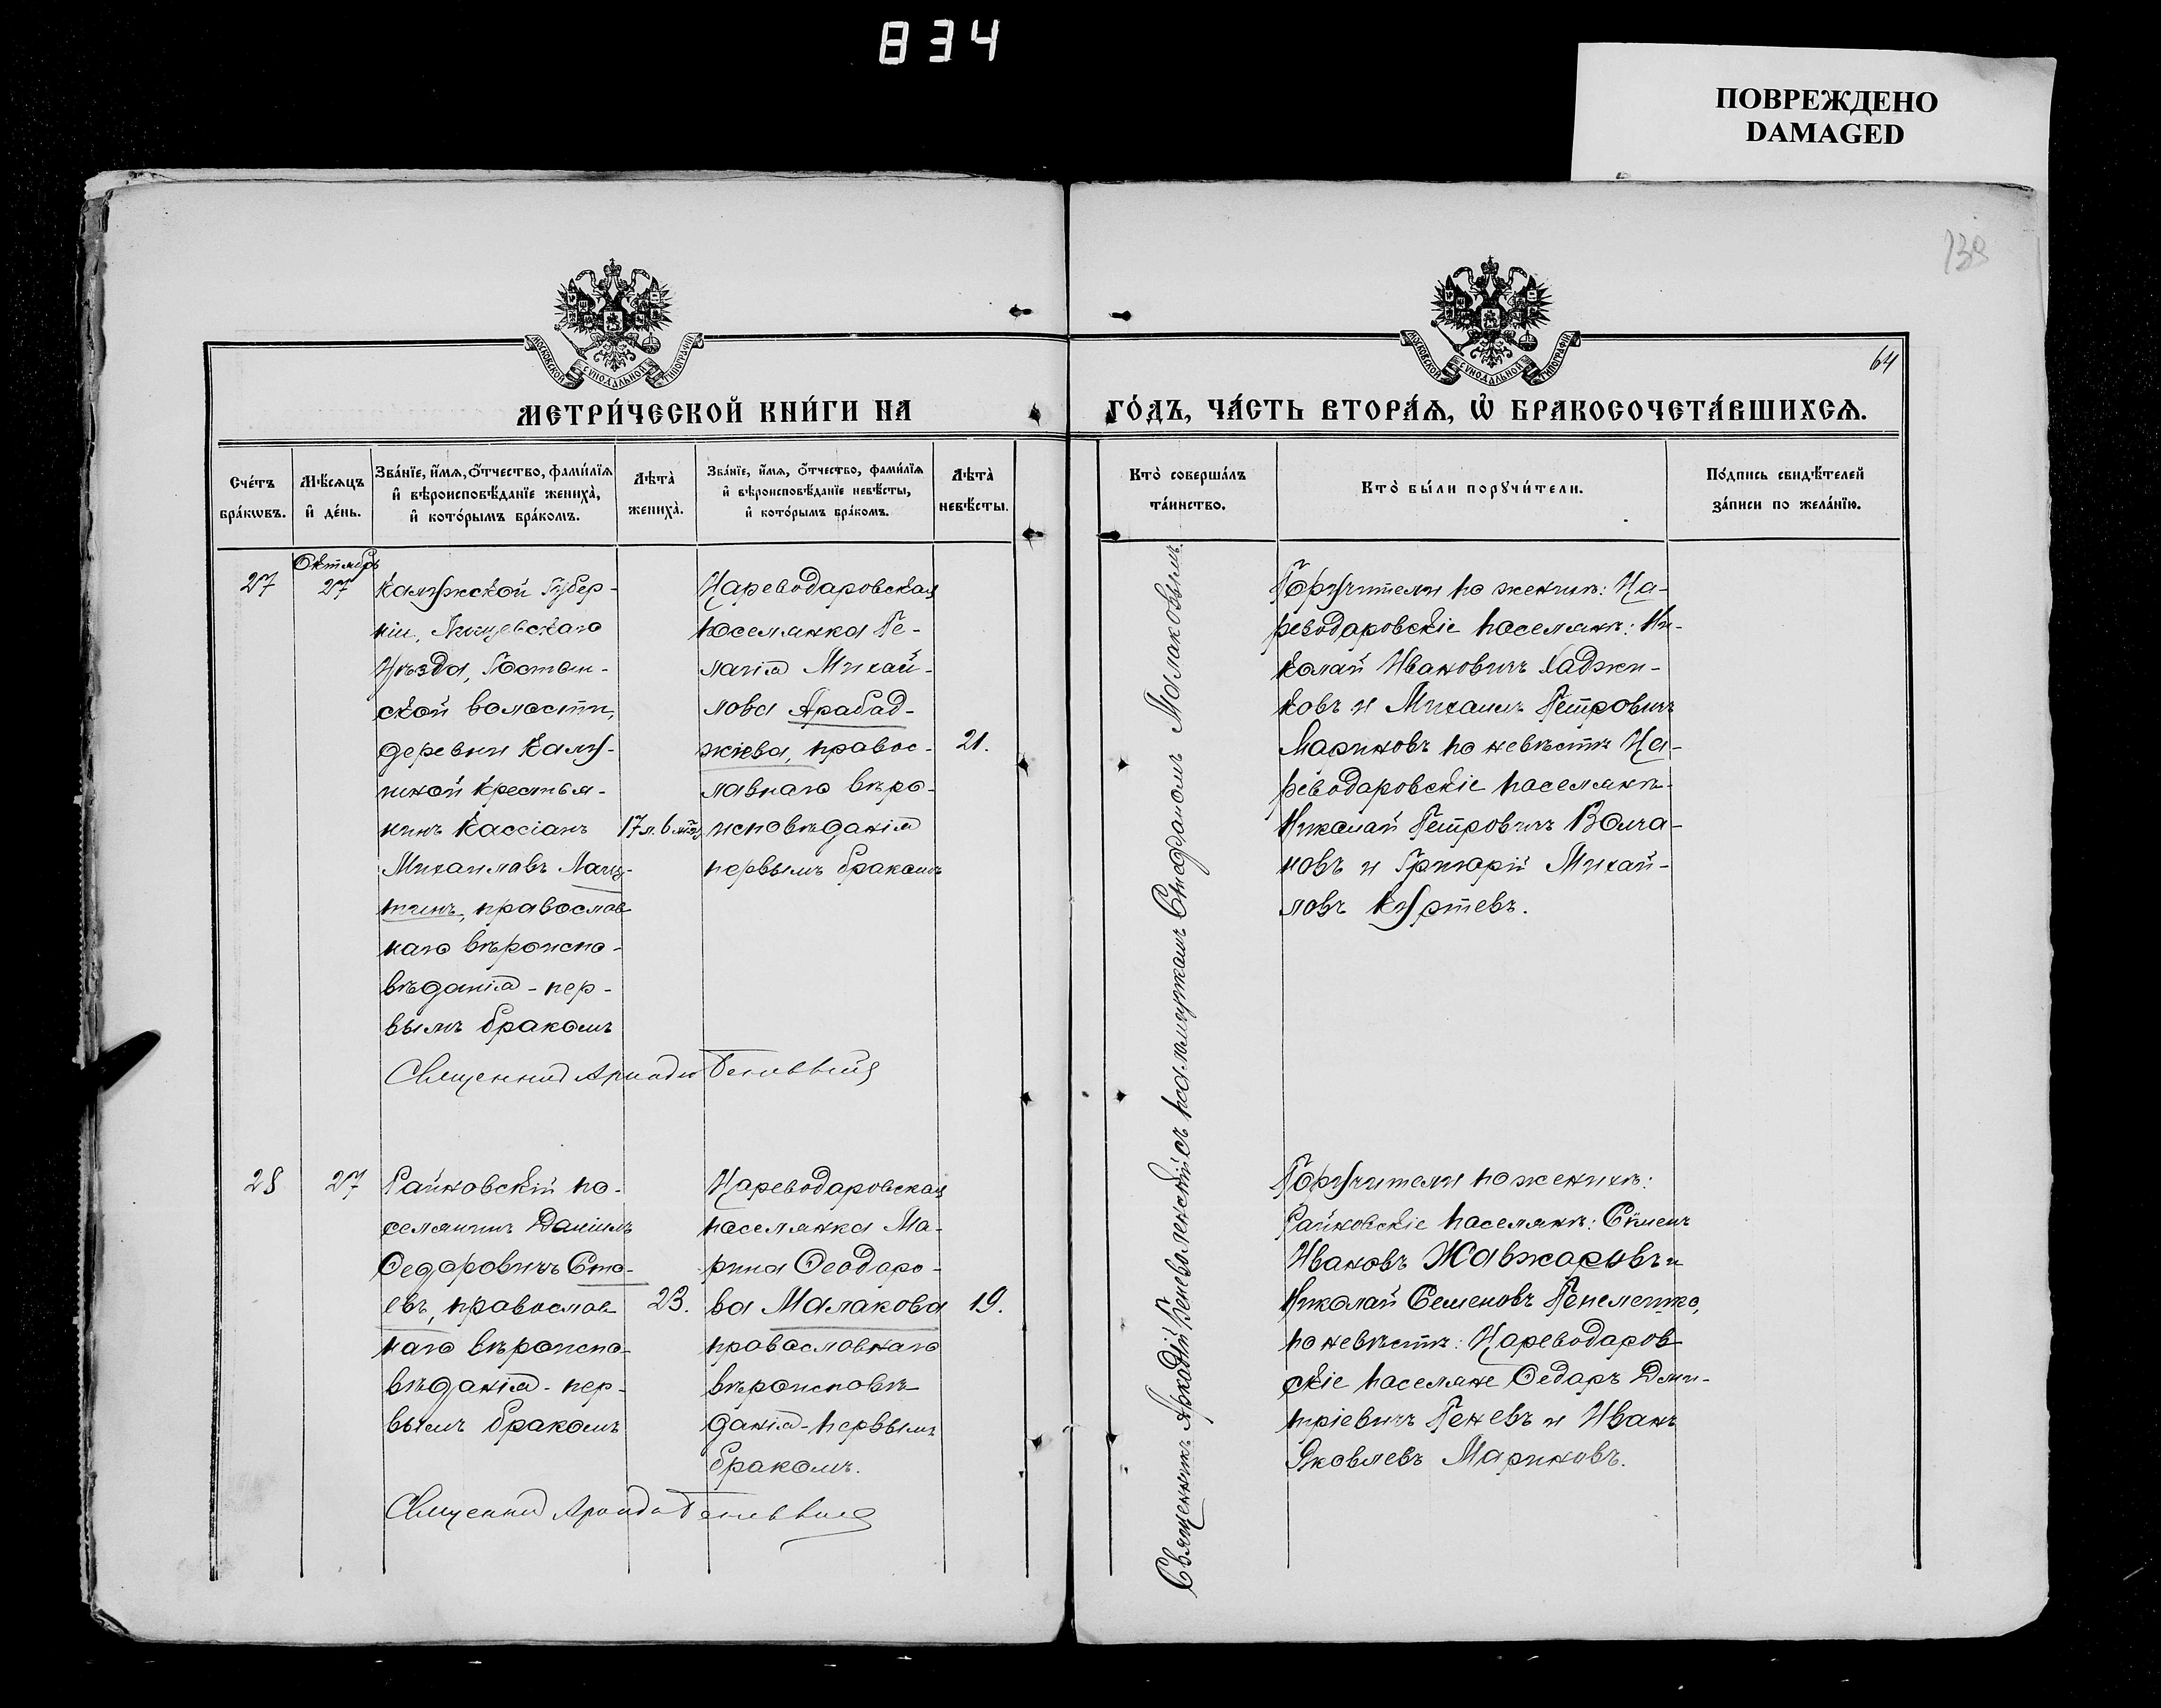 834
ПОВРЕЖДЕНО
DAMAGED
138
64
МОСКОВСКОЙ СѴНОДАЛЬНОЙ ТИПОГРАФІИ
МОСКОВСКОЙ СѴНОДАЛЬНОЙ ТИПОГРАФІИ
МЕТРИ́ЧЕСКОЙ КНИ́ГИ НА
ГО́ДЪ, ЧА́СТЬ ВТОРА́Ѧ, Ѽ БРАКОСОЧЕТА́ВШИХСѦ.
Сче́тъ бра́кѡвъ.
Мѣ́сѧцъ и҆ де́нь.
Зва́нїе, и҆́мѧ, ѻ҆́тчество, фами́лїѧ
и҆ вѣроисповѣ́данїе жениха̀,
и҆ кото́рымъ бра́комъ.
Лѣ́та̀ жениха̀.
Зва́нїе, и҆́мѧ, ѻ҆́тчество, фами́лїѧ
и҆ вѣроисповѣ́данїе невѣ́сты,
и҆ кото́рымъ бра́комъ.
Лѣ́та̀ невѣ́сты.
Кто̀ соверша́лъ
та́инство.
Кто̀ бы́ли порꙋчи́тели.
По́дпись свидѣ́телей
за́писи по жела́нїю.
27
Октябрь
27
Калужской Губер-
ніи,
Уѣзда,
ской волости,
деревни Калу-
гиной крестья-
нинъ Кассіанъ
Михаиловъ
православ
наго вѣроиспо-
вѣданія - пер-
вымъ бракомъ
17 л. 6 м.
Цареводаровская
поселянка Пе-
лагія Михай-
лова Арабад-
жіева, правос-
лавнаго вѣро-
исповѣданія
первымъ бракомъ
21.
Священник Аркадій
Священникъ Аркадій съ псаломщикомъ Стефаномъ Малаковымъ.
Поручители по женихѣ: Ца-
реводаровскіе поселяне: Ни-
колай Ивановичъ Хаджи-
ковъ и Михаилъ Петровичъ
Мариновъ по невѣстѣ Ца-
реводаровскіе поселяне
Николай Петровичъ Волча-
новъ и Григорій Михай-
ловъ Куртевъ.
28
27
Райновскій по-
селянинъ Даніилъ
Ѳедоровичъ Сто-
евъ, православ
наго вѣроиспо-
вѣданія - пер-
вымъ бракомъ
23.
Цареводаровская
поселянка Ма-
рина Ѳеодоро-
ва Малакова
православнаго
вѣроисповѣ
данія - первымъ
бракомъ.
19.
Священник Аркадій
Поручители по женихѣ:
Райновскіе поселяне: Сѵменъ
Ивановъ Жавжаровъ и
Николай Семеновъ Пепелешко,
по невѣстѣ: Цареводаров
скіе поселяне Ѳедоръ Дми-
тріевичъ Геневъ и Иванъ
Яковлевъ Мариновъ.